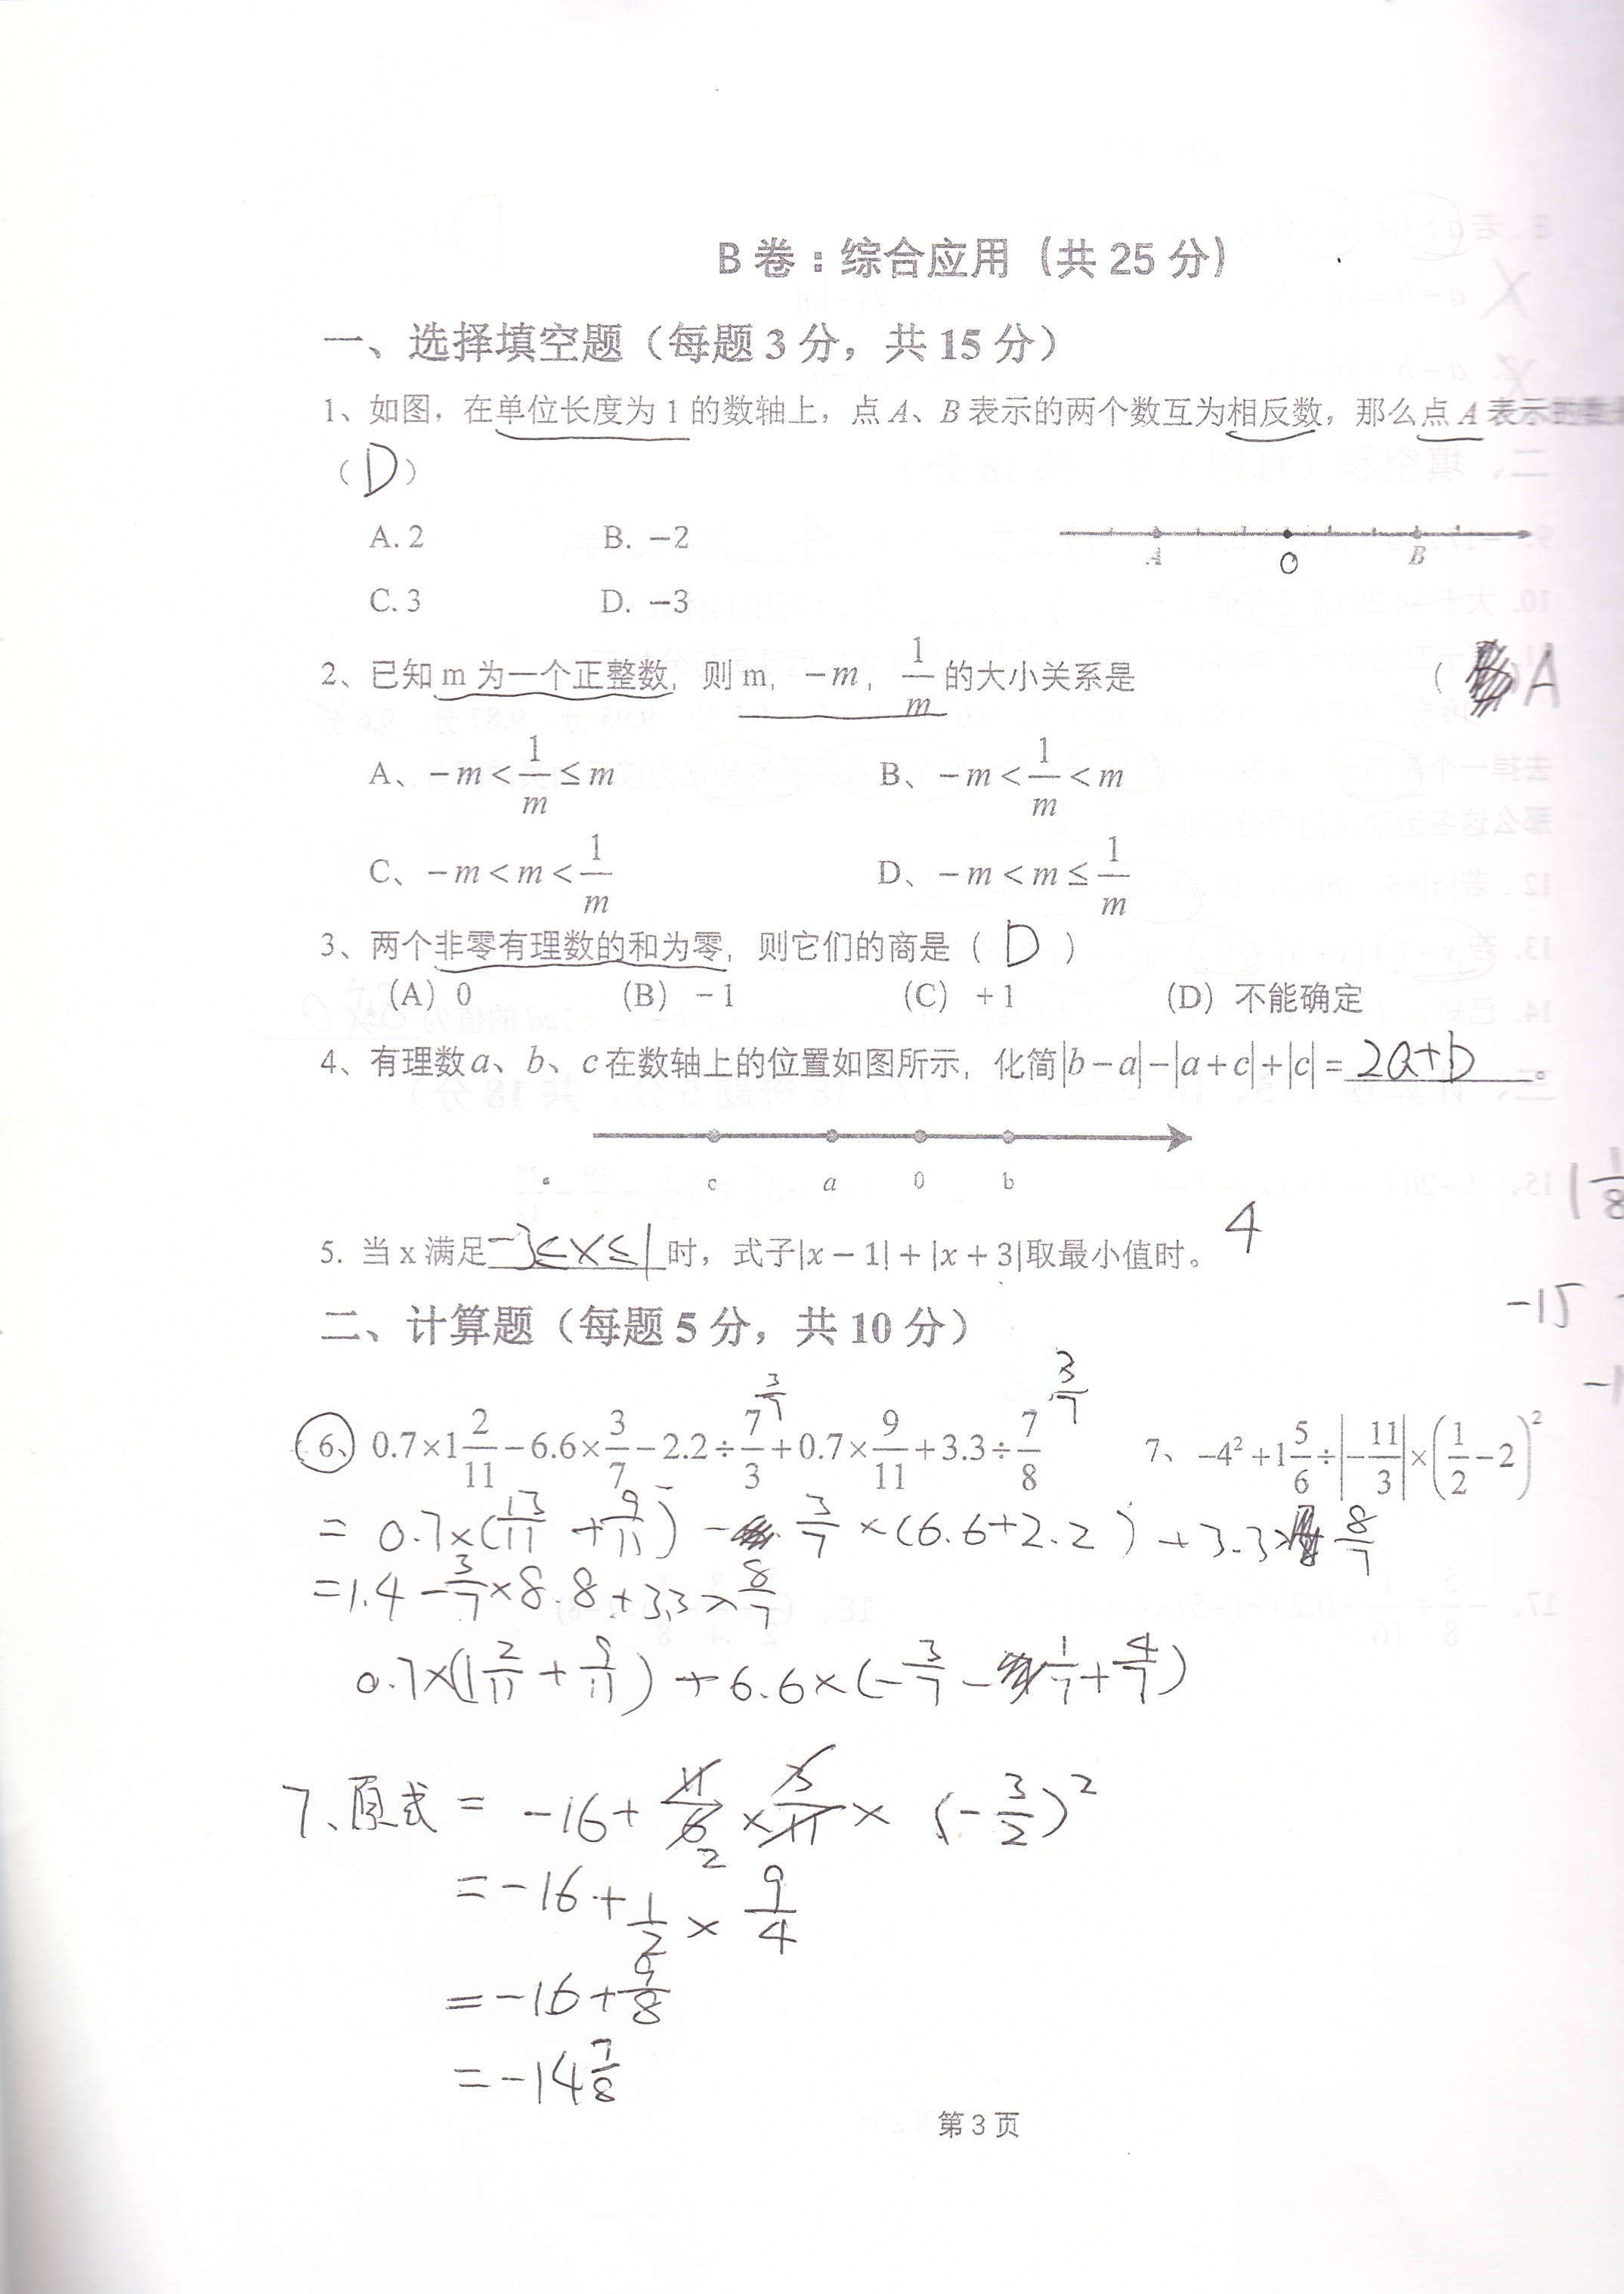 B 卷：综合应用（共 25 分）
一、选择填空题（每题 3 分，共 15 分）
1、如图，在单位长度为 1 的数轴上，点 A、B 表示的两个数互为相反数，那么点 A 表示
（ D ）
A. 2 B. －2
A O B
C. 3 D. －3
2、已知 m 为一个正整数，则 m，－m，1/m 的大小关系是 （ A
A、－m < 1/m ≤ m B、－m < 1/m < m
C、－m < m < 1/m D、－m < m ≤ 1/m
3、两个非零有理数的和为零，则它们的商是（ D ）
（A）0 （B）－1 （C）＋1 （D）不能确定
4、有理数 a、b、c 在数轴上的位置如图所示，化简|b－a|－|a＋c|＋|c|＝ 2a+b 。
c a 0 b
5. 当 x 满足 -3≤x≤1 时，式子|x－1|＋|x＋3|取最小值时。 4
二、计算题（每题 5 分，共 10 分）
3/7 3/7
6、0.7×1 2/11－6.6×3/7－2.2÷7/3＋0.7×9/11＋3.3÷7/8 7、－4²＋1 5/6÷|－11/3|×(1/2－2)²
= 0.7×(13/11 + 9/11) - 3/7 ×(6.6+2.2) + 3.3× 8/7
=1.4 - 3/7×8.8 + 3.3× 8/7
0.7×(1 2/11 + 9/11) + 6.6×(-3/7 - 1/7 + 4/7)
7、原式 = -16 + 11/6 × 3/11 × (-3/2)²
2
= -16 + 1/2 × 9/4
= -16 + 9/8
= -14 7/8
第 3 页